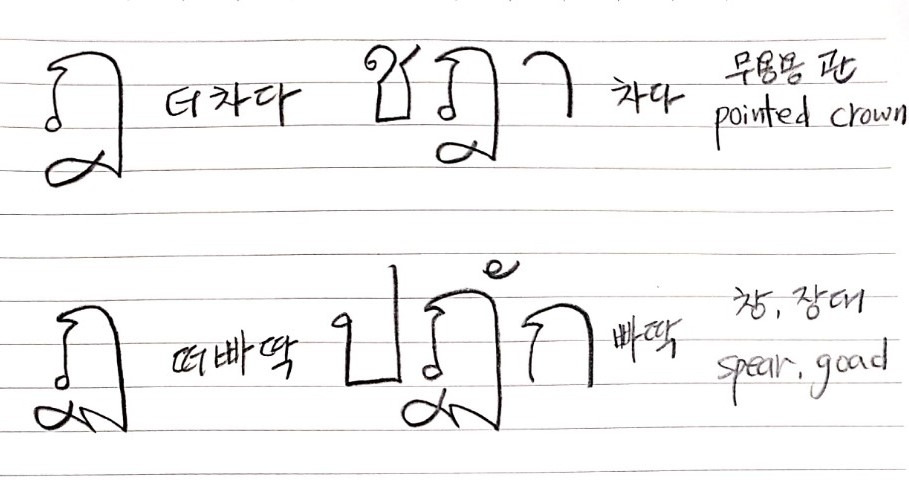 ฎ 더차다 ชฎา 차다 무용용 관
pointed crown
ฏ 떠빠딱 ปฏัก 빠딱 창, 장대
spear, goad